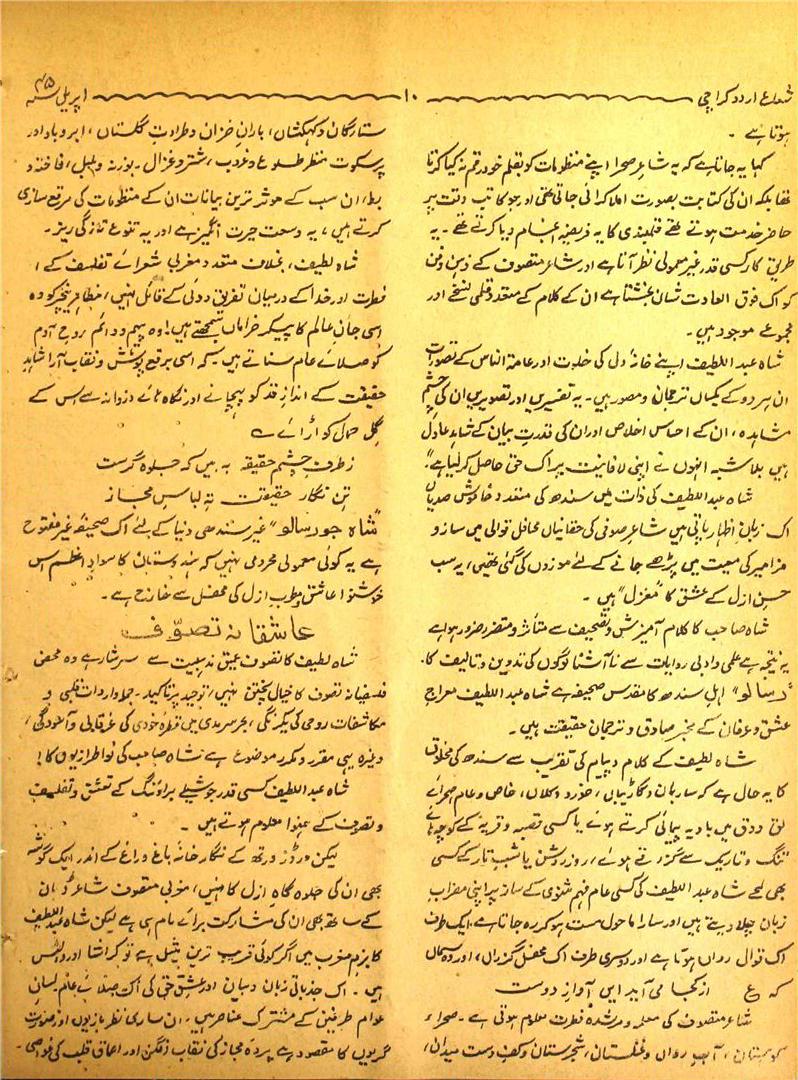 شعاع اردو کراچی
۱۰
اپریل ۴۵ سنہ
ہوتا ہے ۔
کہا یہ جاتا ہے کہ یہ شاعرِ صحرا اپنے منظومات کو بقلم خود رقم نہ کیا کرتا
تھا بلکہ ان کی کتابت بصورت املا کرائی جاتی تھی اور جو کاتب وقت پر
حاضر خدمت ہوتے تھے قلمبندی کا یہ فریضہ انجام دیا کرتے تھے ۔ یہ
طریق کار کسی قدر غیر معمولی نظر آتا ہے اور شاعر متصوف کے ذہن و فن
کو اک فوق العادت شان بخشتا ہے ان کے کلام کے متعدد قلمی نسخے اور
مجموعے موجود ہیں ۔
شاہ عبد اللطیف اپنے خانۂ دل کی خلوت اور عامۃ الناس کے تصورات
ان ہر دو کے یکساں ترجمان و مصور ہیں ۔ یہ تفسیریں اور تصویریں ان کی چشم
مشاہدہ ، ان کے احساس اخلاص اور ان کی قدرت بیان کے شاہد عادل
ہیں بلاشبہ انہوں نے اپنی لافانیت پر اک حق حاصل کر لیا ہے ۔
شاہ عبد اللطیف کی ذات میں سندھ کی متعدد خاموش صدیاں
اک زبان اظہار پاتی ہیں شاعر صوفی کی حقانیاں محافل قوالی میں ساز و
مزامیر کی معیت میں پڑھے جانے کے لئے موزوں کی گئی تھیں ، یہ سب
حسن ازل کے عشق کا "مغزل" ہیں ۔
شاہ صاحب کا کلام آمیزش و تصحیف سے متأثر و متضرر ضرور ہوا ہے
یہ نتیجہ ہے علمی و ادبی روایات سے نا آشنا لوگوں کی تدوین و تالیف کا ۔
"رسالو" اہل سندھ کا مقدس صحیفہ ہے شاہ عبد اللطیف معراج
عشق و عرفان کے مخبر صادق و ترجمان حقیقت ہیں ۔
شاہ لطیف کے کلام و پیام کی تقریب سے سندھ کی مخلوق
کا یہ حال ہے کہ ساربان و گاڑیباں ، خورد و کلاں ، خاص و عام صحرائے
لق و دق میں بادیہ پیمائی کرتے ہوئے یا کسی قصبہ و قریہ کے کوچہائے
تنگ و تاریک سے گزرتے ہوئے ، روز روشن یا شب تار کے کسی
بھی لمحے شاہ عبد اللطیف کی کسی عام فہم مثنوی کے ساز پر اپنی مضراب
زبان چلا دیتے ہیں اور سارا ماحول مست ہو کر رہ جاتا ہے ۔ ایک طرف
اک قوال رواں ہوتا ہے اور دوسری طرف اک محفل گزراں ، اور وہ سماں
کہ ع از کجا می آید ایں آواز دوست
شاعر متصوف کی معلمہ و مرشدہ فطرت معلوم ہوتی ہے ۔ صحراء
کوہستان ، آب رواں و نخلستان ، شجرستان و کف دست میدان ،
ستارگان و کہکشاں ، باران خزاں و طراوت گلستاں ، ابر و باد اور
پر سکوت منظر طلوع و غروب ، شتر و غزال ۔ بوزنہ و بلبل ، فاختہ و
بط ، ان سب کے موثر ترین بیانات ان کے منظومات کی مرقع سازی
کرتے ہیں ، یہ وسعت حیرت انگیز ہے اور یہ تنوع تازگی ریز ۔
شاہ لطیف ، بخلاف متعدد مغربی شعرائے تفلسف کے ،
فطرت اور خدا کے درمیان تفریق و دوئی کے قائل نہیں ، مظاہر نیچر کو وہ
اسی جان عالم کا پیکر خراماں سمجھتے ہیں ! وہ پیہم و دائم روح آدم
کو صلائے عام سناتے ہیں ۔ کہ اسی برقع پوش و نقاب آرا شاہد
حقیقت کے انداز قد کو پہچانے اور نگاہ ہائے دزدانہ سے اس کے
گل جمال کو اڑائے ے
زطرف چشم حقیقہ بہ بیں کہ جلوہ گرست
تن نگار حقیقت تہ لباس مجاز
"شاہ جو رسالو" غیر سندھی دنیا کے لئے اک صحیفۂ غیر مفتوح
ہے یہ کوئی معمولی محرومی نہیں کہ ہندوستان کا سواد اعظم اس
خوشنوا عاشق و مطرب ازل کی محفل سے خارج ہے ۔
عاشقانہ تصوّف
شاہ لطیف کا تصوف عمیق مذہبیت سے سرشار ہے وہ محض
فلسفیانہ تصوف کا خیال پختن نہیں ، توحید پر تاکید ۔ جملہ واردات قلبی و
مکاشفات روحی کی یکرنگی ، بحر سرمدی میں قطرۂ خودی کی غرقابی و آسودگی ،
وغیرہ یہی مقرر و مکرر موضوع ہے شاہ صاحب کی نوا طرازیوں کا !
شاہ عبد اللطیف کسی قدر جوشیلے براؤننگ کے تعشق و تفلسف
و تصوف کے ہمنوا معلوم ہوتے ہیں ۔
لیکن ورڈزورتھ کے نگار خانۂ باغ و راغ کے اندر ایک گوشہ
بھی ان کی جلوہ گاہ ازل کا نہیں ، مغربی متصوف شاعر
کے ساتھ بھی ان کی مشارکت برائے نام ہی ہے لیکن شاہ عبد اللطیف
کا بزم مغرب میں اگر کوئی قریب ترین مثیل ہے تو کراشا اور
ہیں ۔ اک جذباتی زبان و بیان اور عشق حق کی اک
عوام طرفین کے مشترک عناصر ہیں ۔ ان ساری نظر بازیوں اور صورت
گریوں کا مقصود ہے پردۂ مجاز کی نقاب فگنی اور اعماق قلب کی غواصی ۔